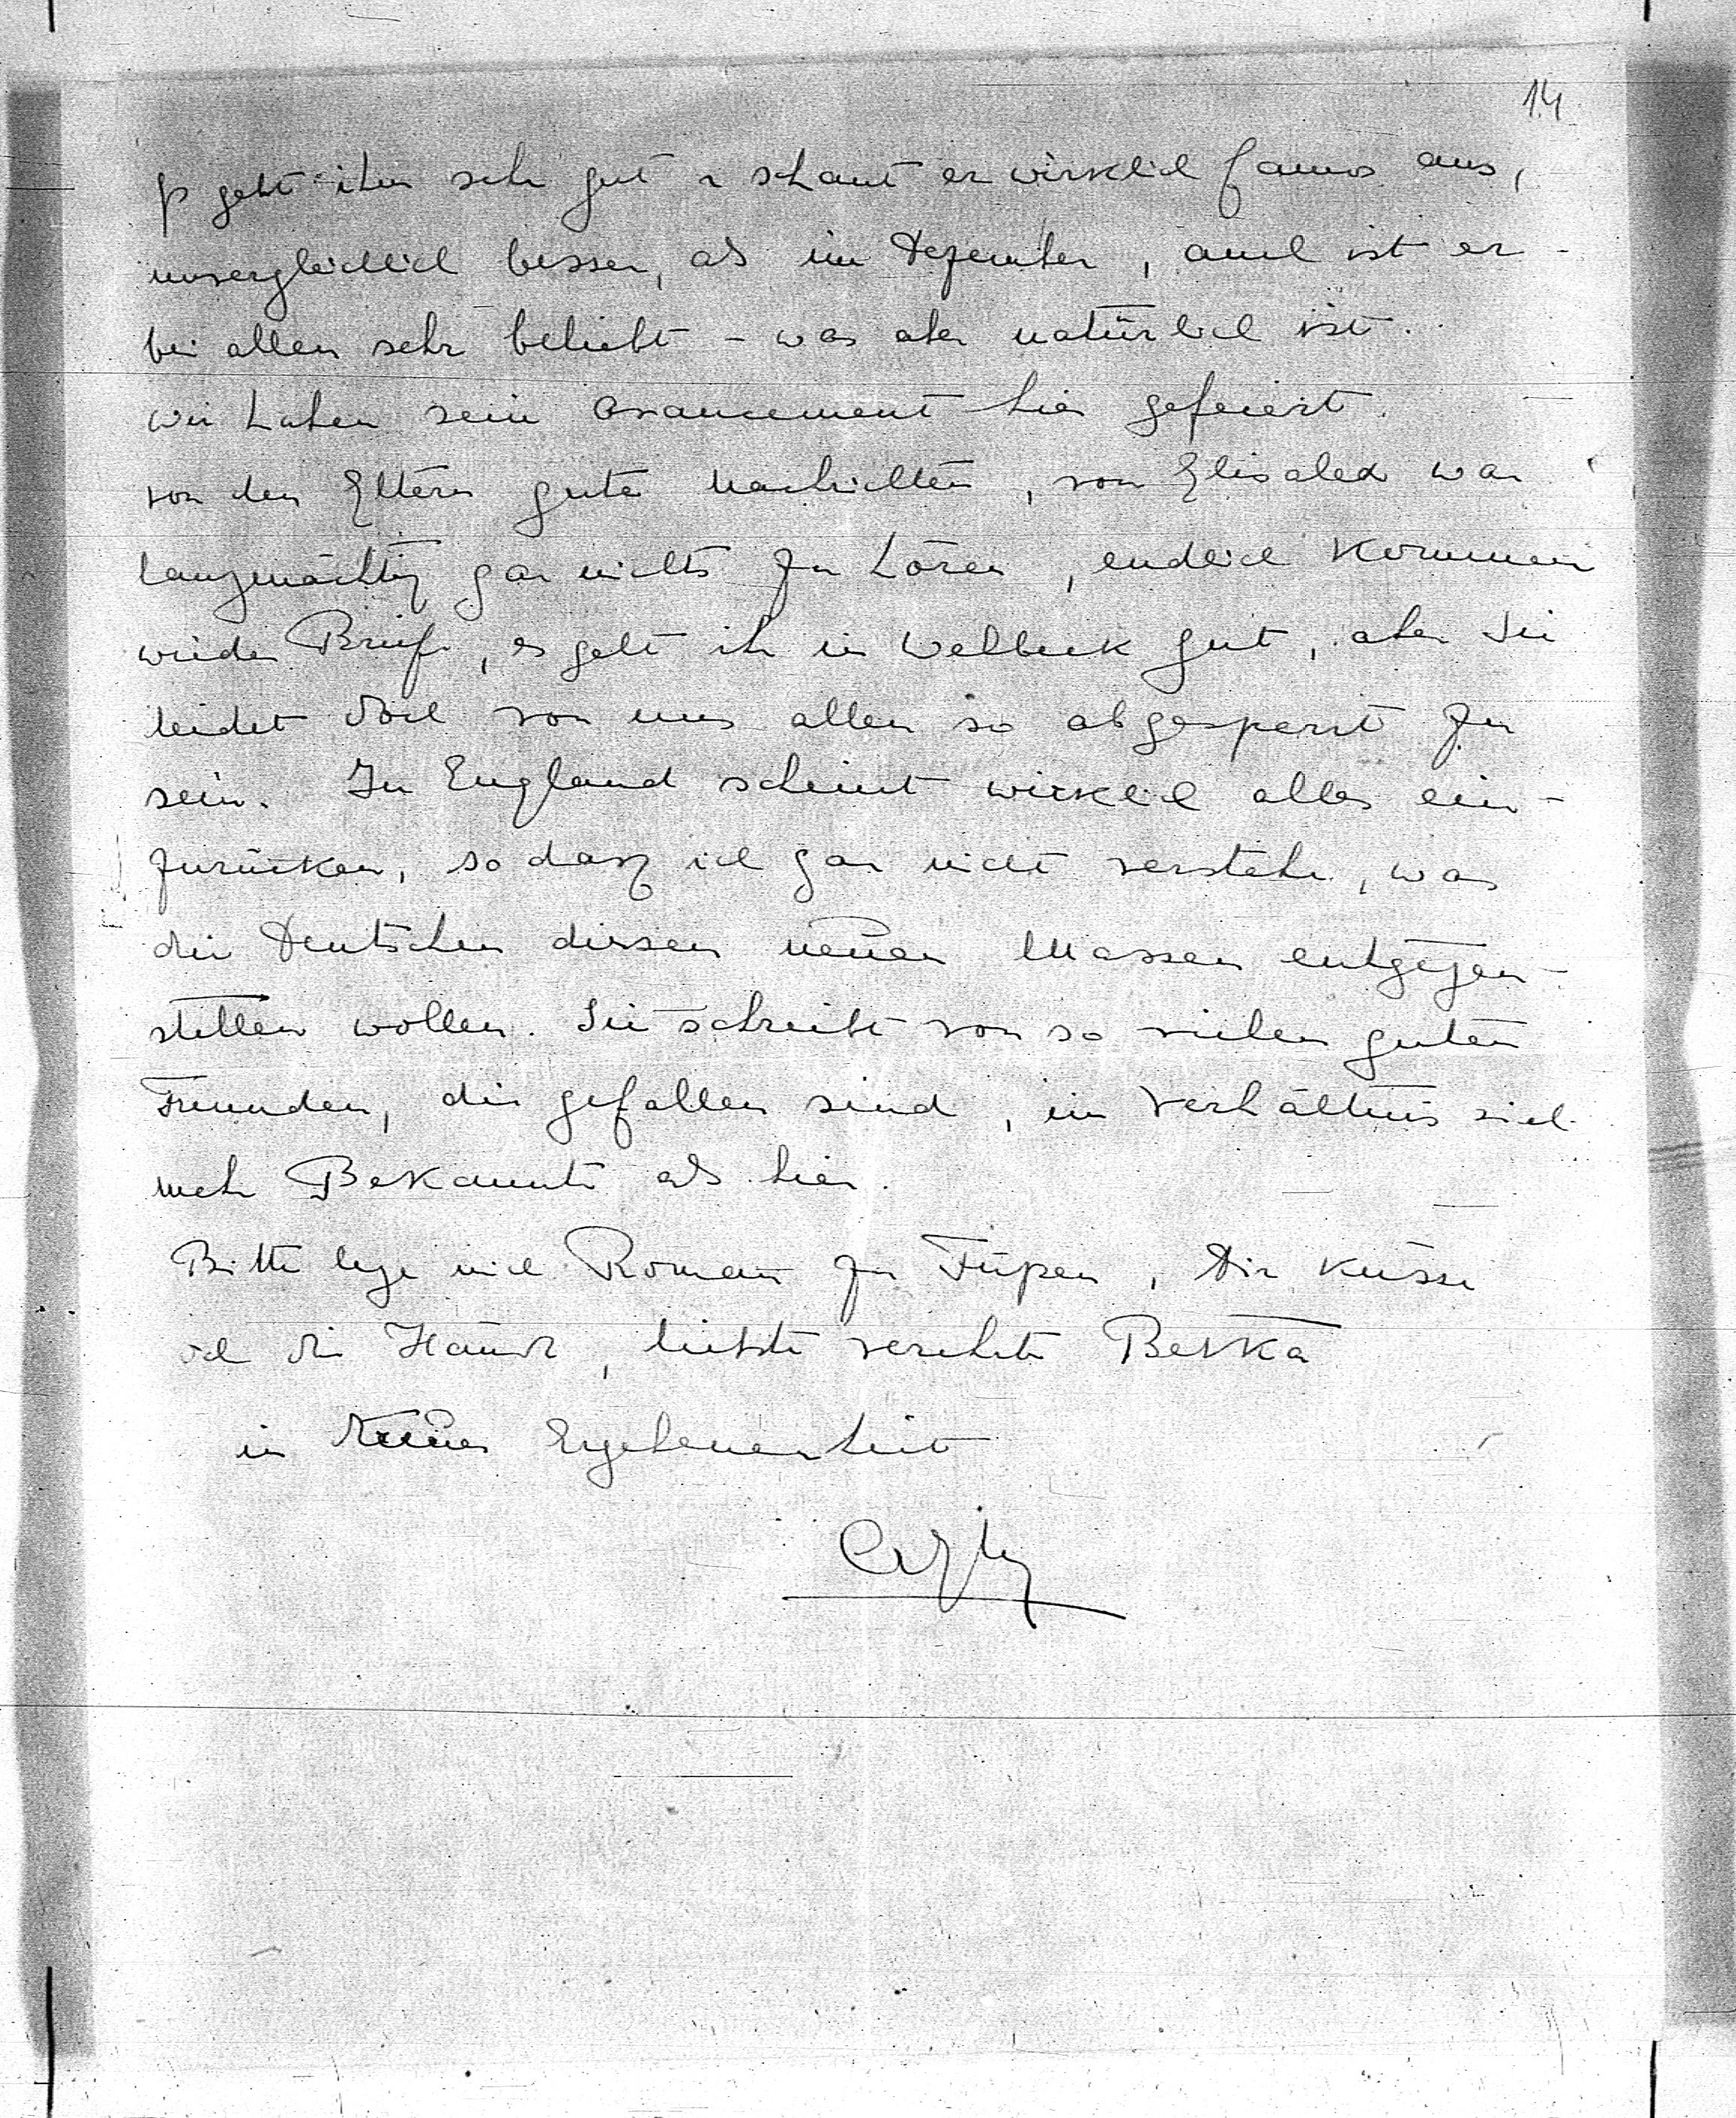 14
Es geht ihm sehr gut u schaut er wirklich famos aus,
unvergleichlich besser, als im Dezember, auch ist er
bei allen sehr beliebt - was aber natürlich ist.
Wir haben sein Avancement hier gefeiert.
Von den Eltern gute Nachrichten, von Elisalex war
langmächtig gar nichts zu hören, endlich kommen
wieder Briefe, es geht ihr in Welbeck gut, aber sie
leidet doch von uns allen so abgesperrt zu
sein. In England scheint wirklich alles ein-
zurücken, so dass ich gar nicht verstehe, was
die Deutschen diesen neuen Massen entgegen-
stellen wollen. Sie schreibt von so vielen guten
Freunden, die gefallen sind, im Verhältnis viel
mehr Bekannte als hier.
Bitte lege mich Roman zu Füßen, Dir küsse
ich die Hände, liebste verehrte Betka
in Ergebenheit